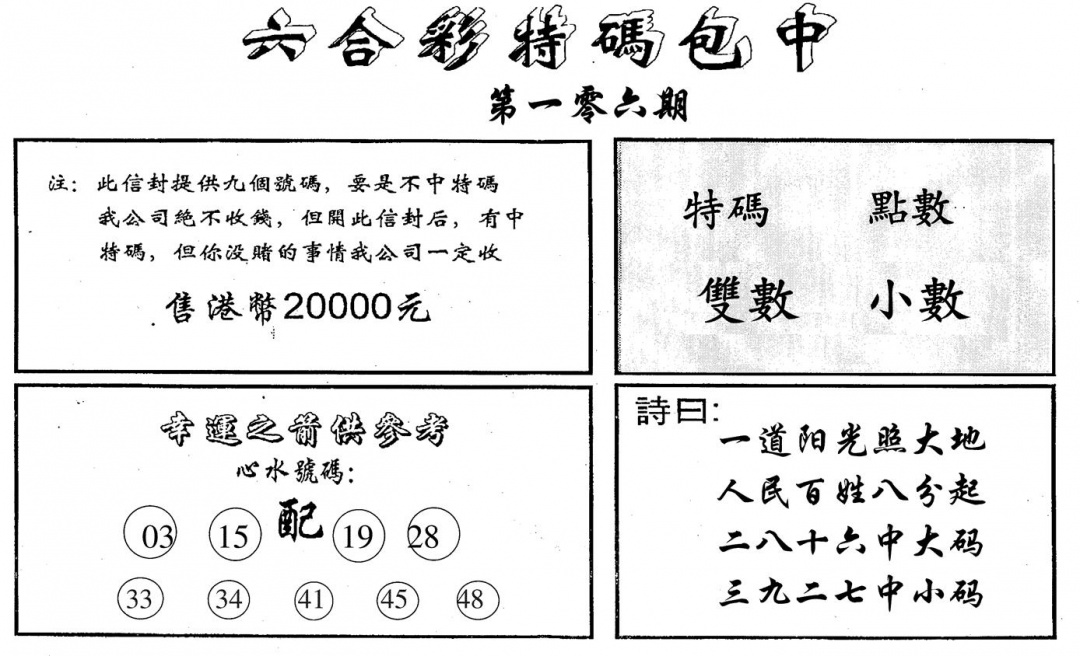 六合彩特碼包中
第一零六期
注：此信封提供九個號碼，要是不中特碼
我公司絶不收錢，但開此信封后，有中
特碼，但你没賭的事情我公司一定收
售港幣20000元
特碼 點數
雙數 小數
幸運之箭供參考
心水號碼：
配
03 15 19 28
33 34 41 45 48
詩曰：
一道阳光照大地
人民百姓八分起
二八十六中大码
三九二七中小码